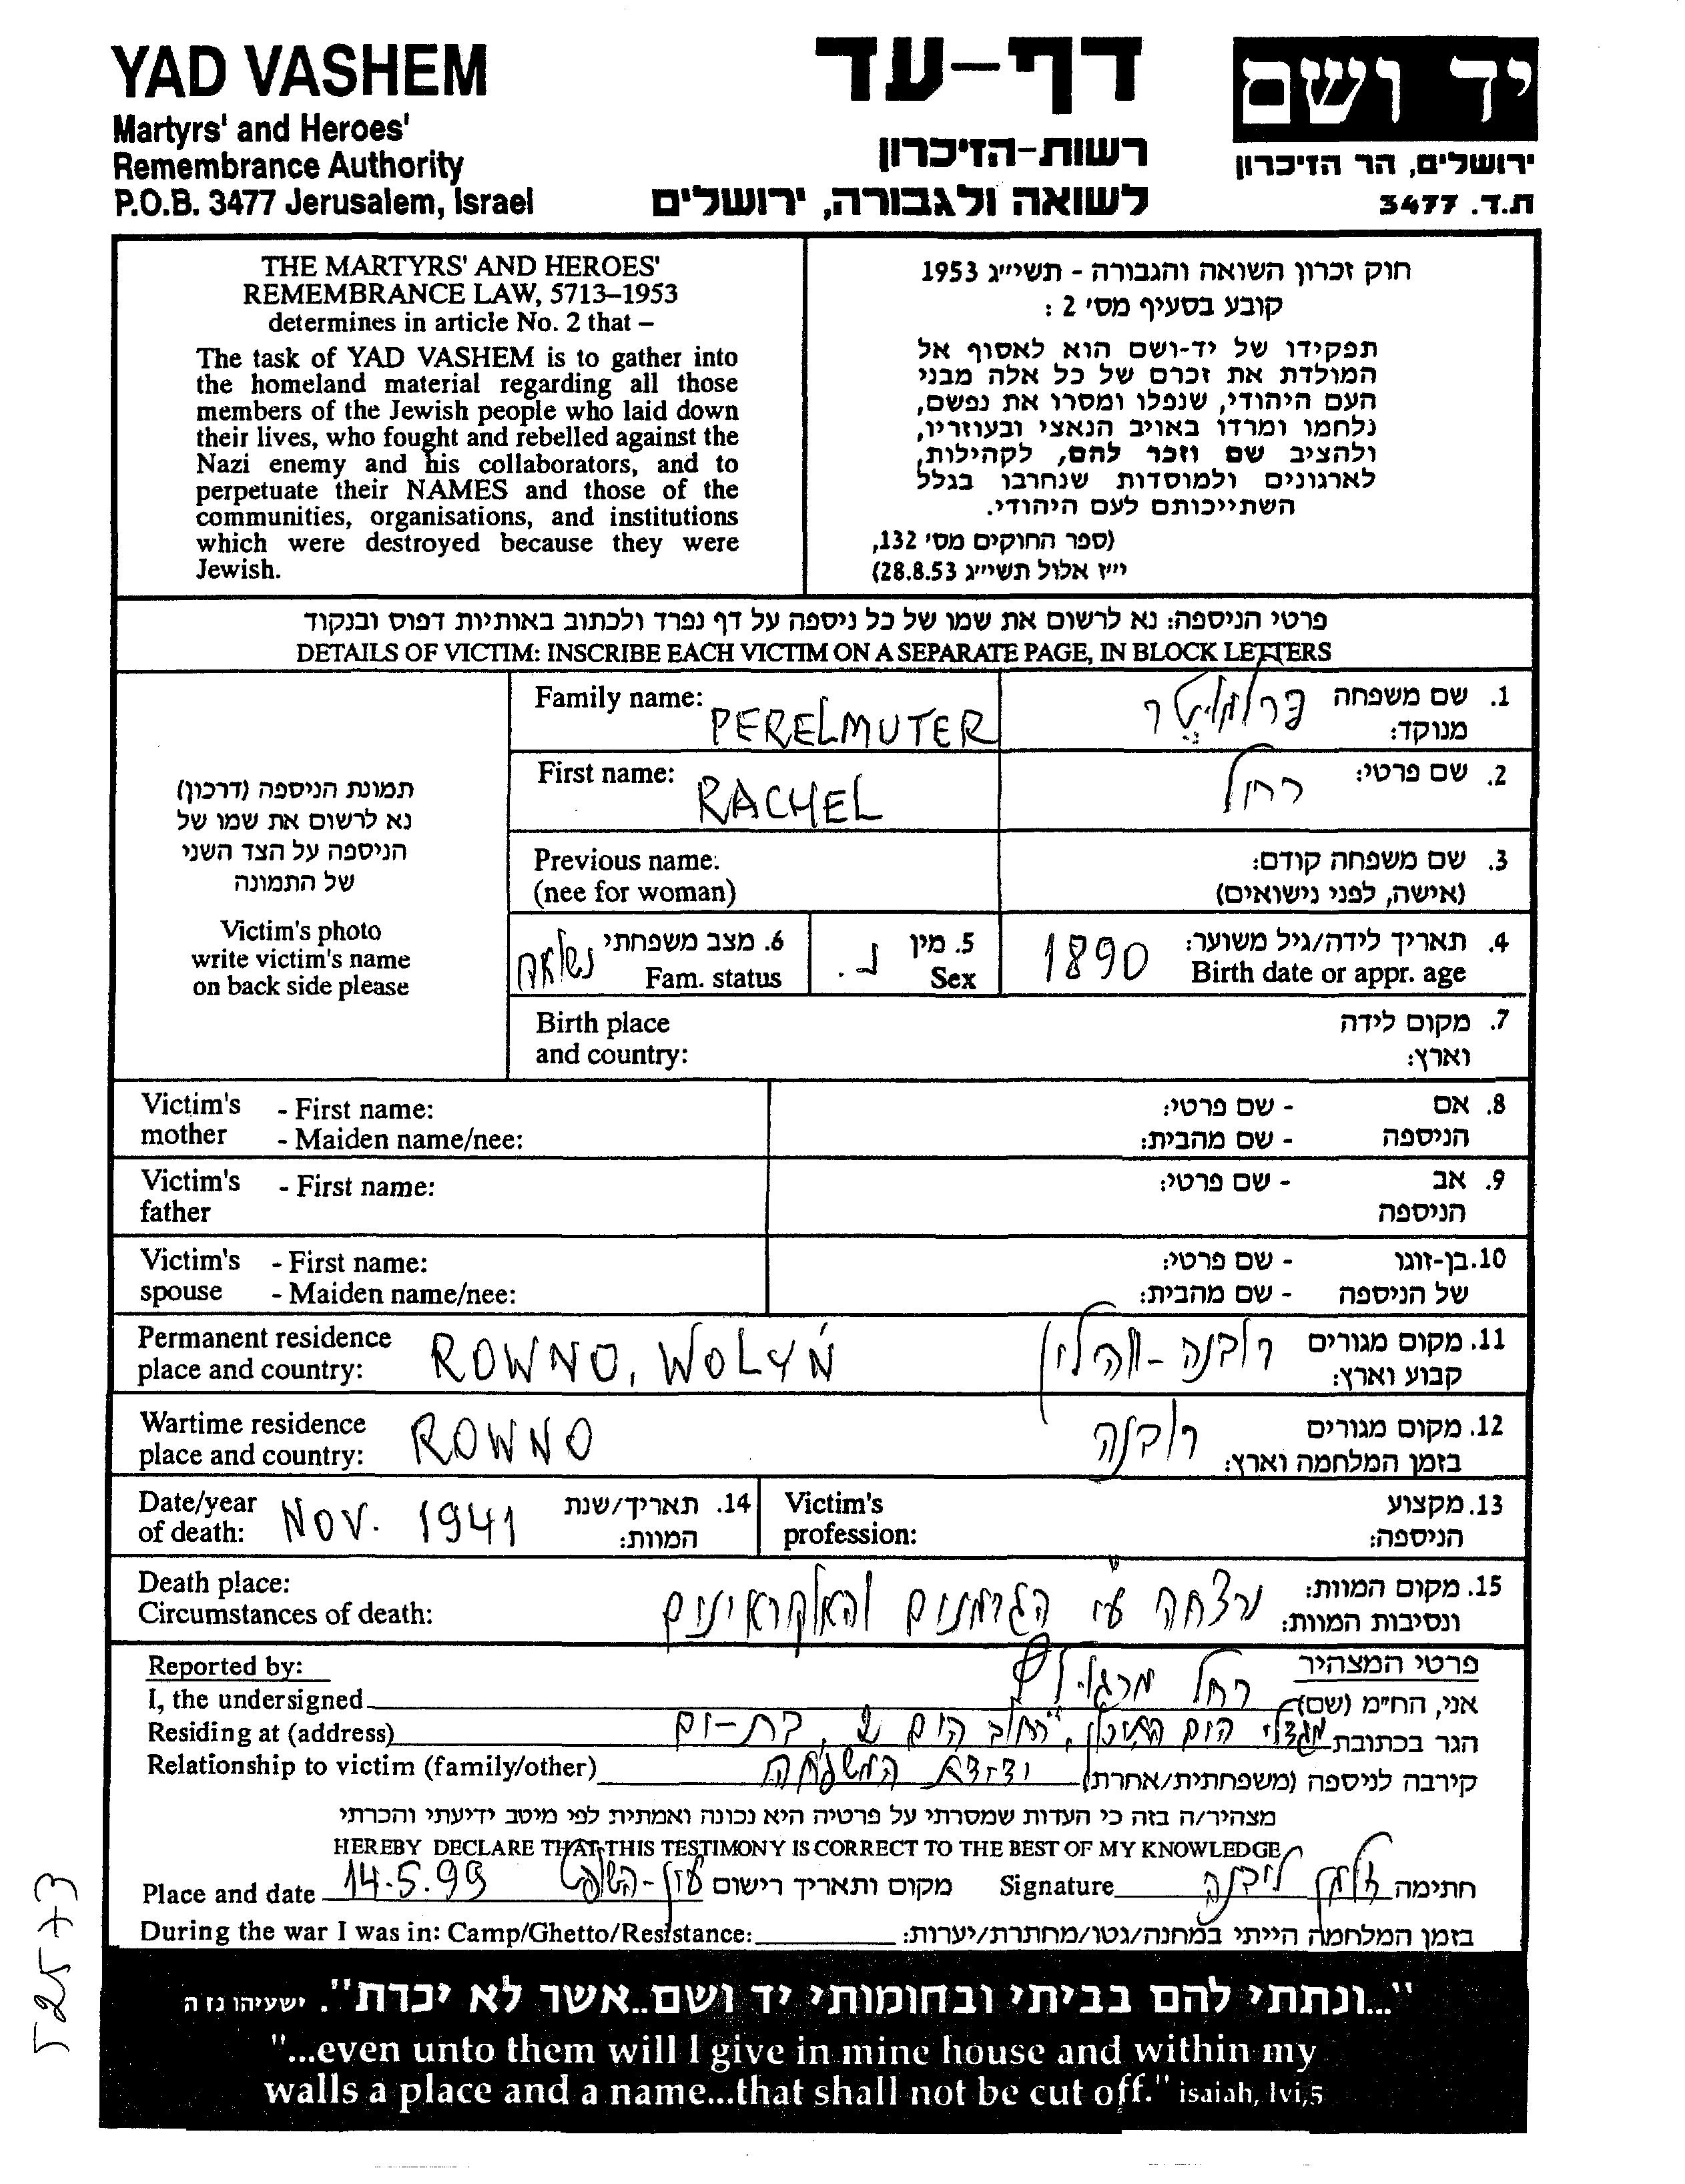 YAD VASHEM
Martyrs' and Heroes'
Remembrance Authority
P.O.B. 3477 Jerusalem, Israel
דף-עד
רשות-הזיכרון
לשואה ולגבורה, ירושלים
יד ושם
ירושלים, הר הזיכרון
ת.ד. 3477
THE MARTYRS' AND HEROES'
REMEMBRANCE LAW, 5713–1953
determines in article No. 2 that –
The task of YAD VASHEM is to gather into
the homeland material regarding all those
members of the Jewish people who laid down
their lives, who fought and rebelled against the
Nazi enemy and his collaborators, and to
perpetuate their NAMES and those of the
communities, organisations, and institutions
which were destroyed because they were
Jewish.
חוק זכרון השואה והגבורה - תשי״ג 1953
קובע בסעיף מס׳ 2 :
תפקידו של יד-ושם הוא לאסוף אל
המולדת את זכרם של כל אלה מבני
העם היהודי, שנפלו ומסרו את נפשם,
נלחמו ומרדו באויב הנאצי ובעוזריו,
ולהציב שם וזכר להם, לקהילות,
לארגונים ולמוסדות שנחרבו בגלל
השתייכותם לעם היהודי.
(ספר החוקים מס׳ 132,
י״ז אלול תשי״ג 28.8.53)
פרטי הניספה: נא לרשום את שמו של כל ניספה על דף נפרד ולכתוב באותיות דפוס ובנקוד
DETAILS OF VICTIM: INSCRIBE EACH VICTIM ON A SEPARATE PAGE, IN BLOCK LETTERS
תמונת הניספה (דרכון)
נא לרשום את שמו של
הניספה על הצד השני
של התמונה
Victim's photo
write victim's name
on back side please
Family name: PERELMUTER
1. שם משפחה פרלמיטר
מנוקד:
First name: RACHEL
2. שם פרטי: רחל
Previous name:
(nee for woman)
3. שם משפחה קודם:
(אישה, לפני נישואים)
4. תאריך לידה/גיל משוער: 1890
Birth date or appr. age
5. מין נ.
Sex
6. מצב משפחתי נשואה
Fam. status
Birth place
and country:
7. מקום לידה
וארץ:
Victim's - First name:
mother - Maiden name/nee:
8. אם - שם פרטי:
הניספה - שם מהבית:
Victim's - First name:
father
9. אב - שם פרטי:
הניספה
Victim's - First name:
spouse - Maiden name/nee:
10. בן-זוגו - שם פרטי:
של הניספה - שם מהבית:
Permanent residence
place and country: ROWNO, WOLYŃ
11. מקום מגורים רובנה - ווהלין
קבוע וארץ:
Wartime residence
place and country: ROWNO
12. מקום מגורים רובנה
בזמן המלחמה וארץ:
Date/year
of death: NOV. 1941
14. תאריך/שנת
המוות:
Victim's
profession:
13. מקצוע
הניספה:
Death place:
Circumstances of death:
15. מקום המוות: נרצחה ע״י הגרמנים והאוקראינים
ונסיבות המוות:
Reported by:
פרטי המצהיר
I, the undersigned
אני, הח״מ (שם) רחל
Residing at (address)
הגר בכתובת מגדלי הים התיכון, רחוב הים 2, בת-ים
Relationship to victim (family/other)
קירבה לניספה (משפחתית/אחרת) ידידת המשפחה
מצהיר/ה בזה כי העדות שמסרתי על פרטיה היא נכונה ואמתית לפי מיטב ידיעתי והכרתי
HEREBY DECLARE THAT THIS TESTIMONY IS CORRECT TO THE BEST OF MY KNOWLEDGE
Place and date 14.5.99
מקום ותאריך רישום
Signature
חתימה
During the war I was in: Camp/Ghetto/Resistance:
בזמן המלחמה הייתי במחנה/גטו/מחתרת/יערות:
"...ונתתי להם בביתי ובחומותי יד ושם..אשר לא יכרת". ישעיהו נז ה
"...even unto them will I give in mine house and within my
walls a place and a name...that shall not be cut off." isaiah, lvi,5
52573